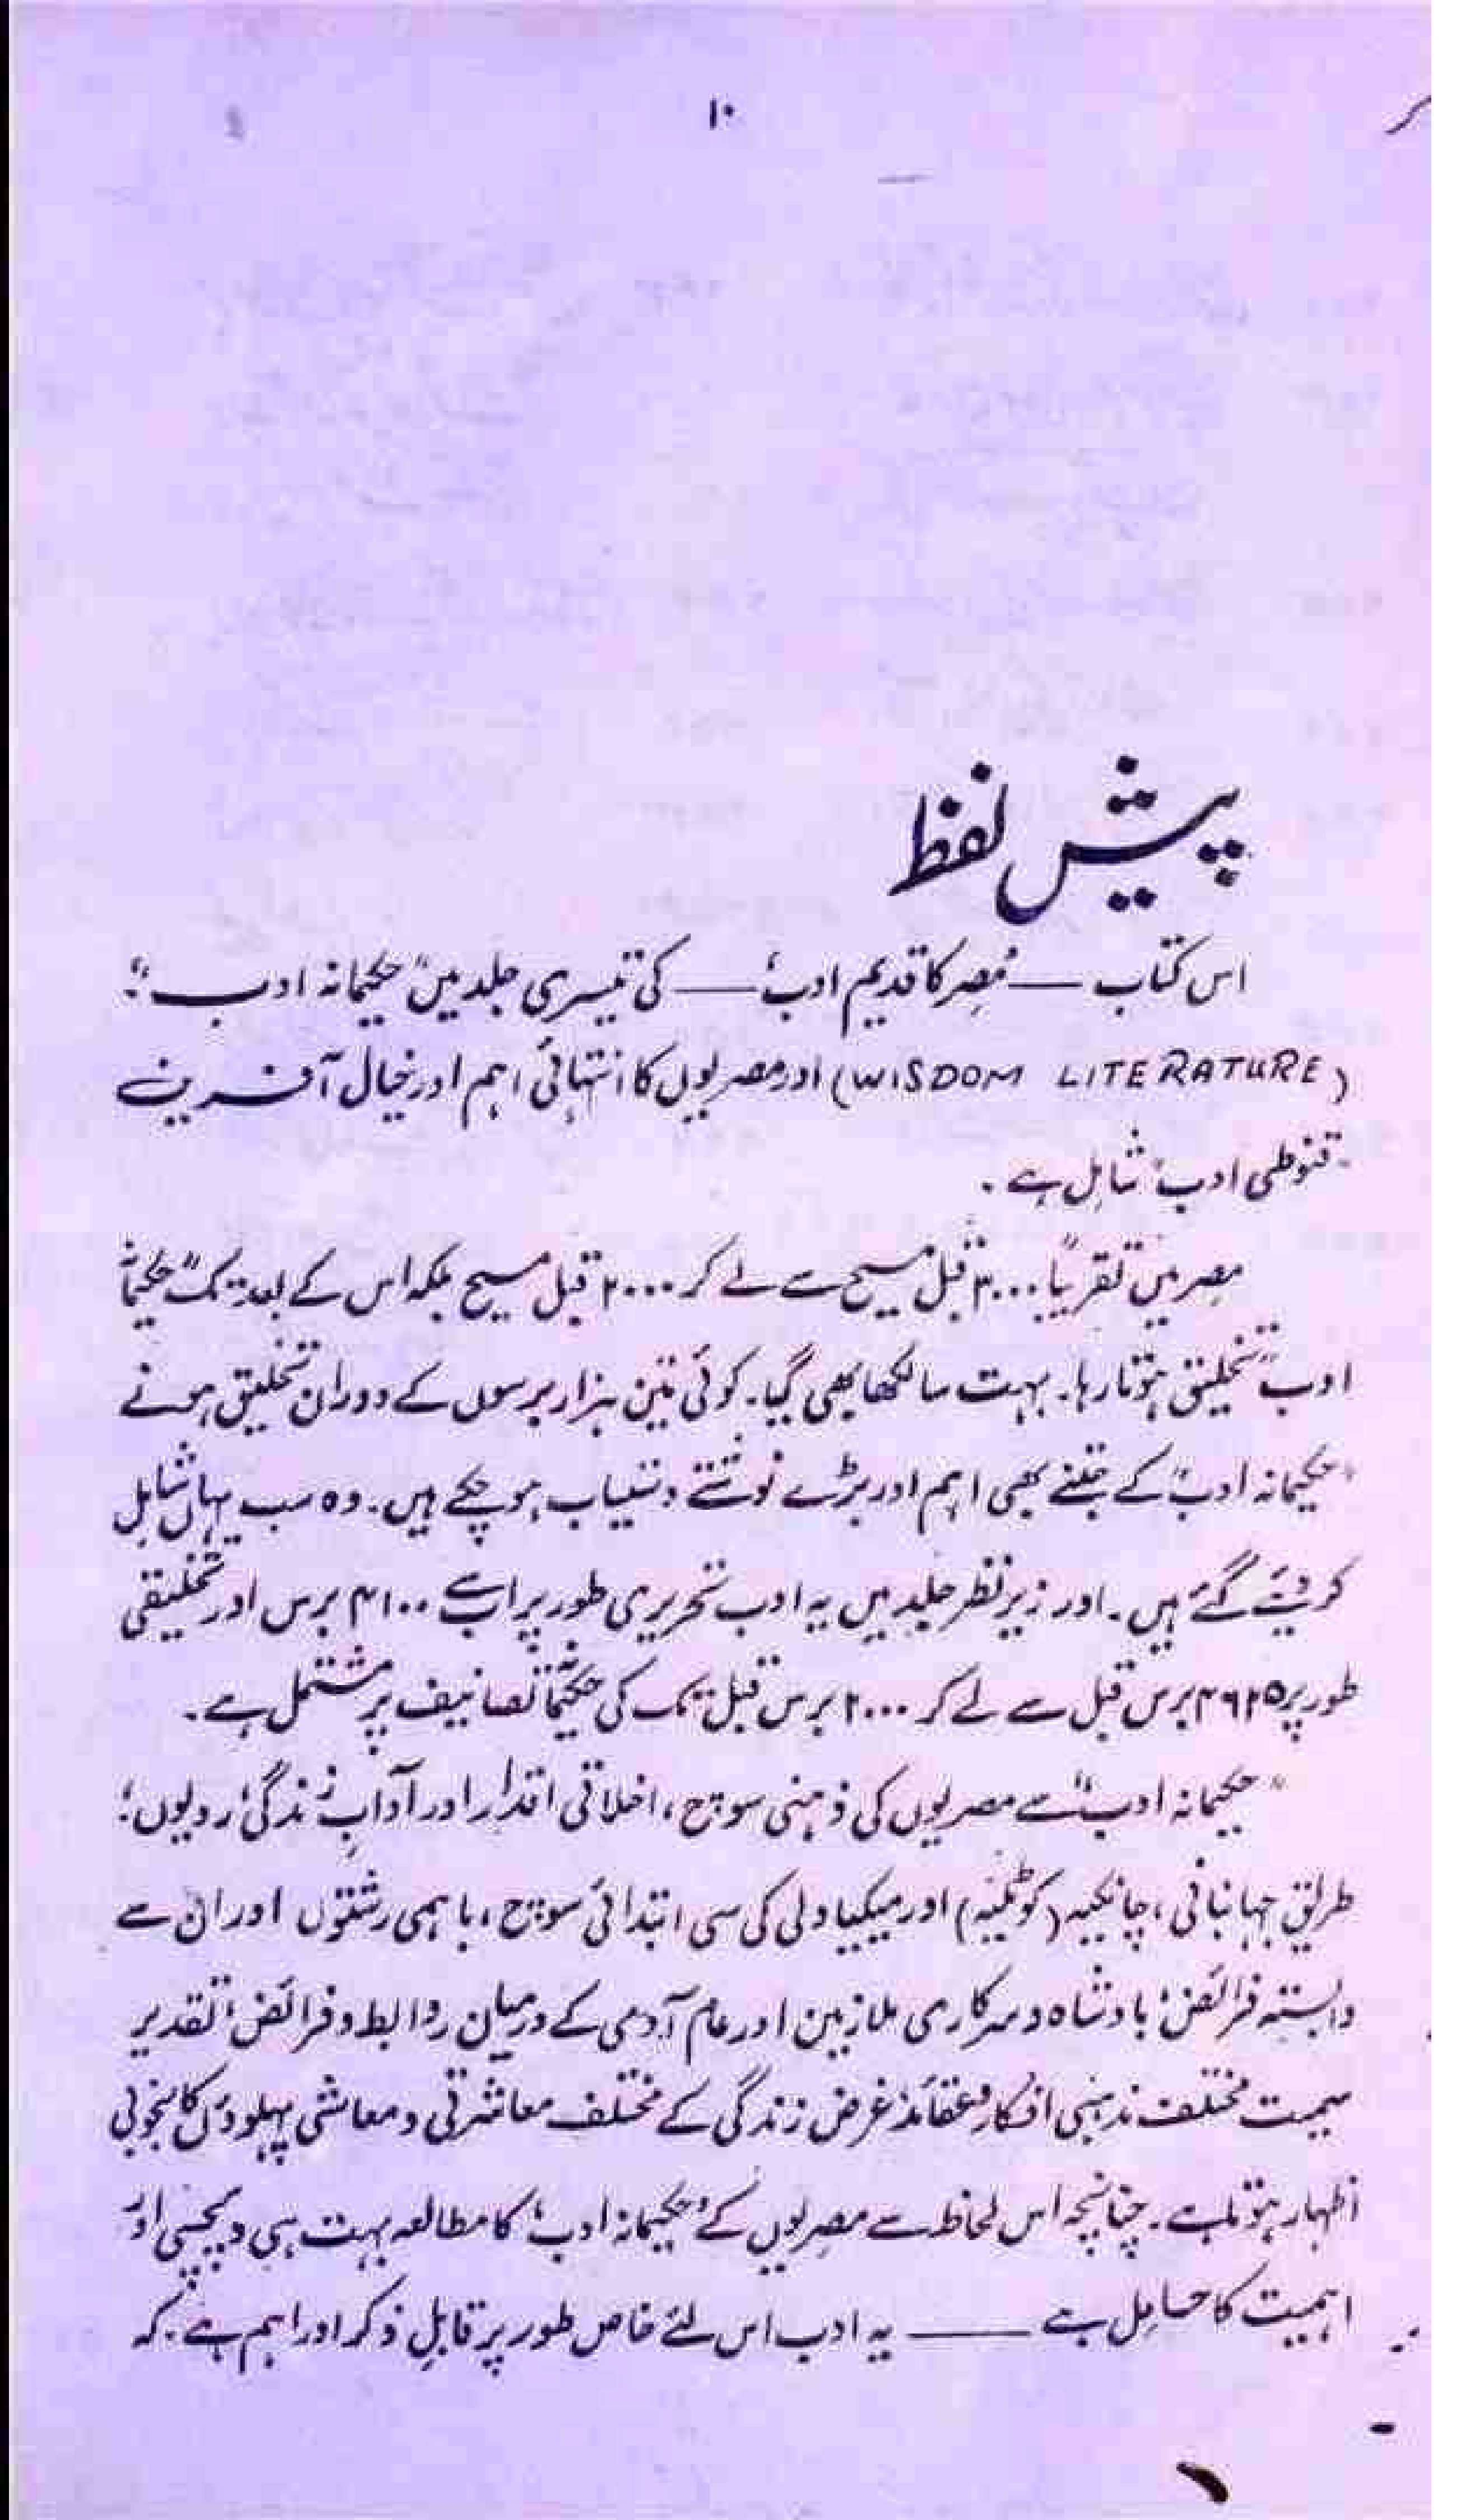 ۱۰
پیش لفظ
اس کتاب —— "مصر کا قدیم ادب" —— کی تیسری جلد میں "حکیمانہ ادب"؛
(WISDOM LITERATURE) اور مصریوں کا انتہائی اہم اور خیال آفرین
"قنوطی ادب" شامل ہے۔
مصر میں تقریباً ۳۰۰۰ قبل مسیح سے لے کر ۲۰۰۰ قبل مسیح بلکہ اس کے بعد تک "حکیمانہ
ادب" تخلیق ہوتا رہا۔ بہت سا لکھا بھی گیا۔ کوئی تین ہزار برسوں کے دوران تخلیق ہونے
"حکیمانہ ادب" کے جتنے بھی اہم اور بڑے نوشتے دستیاب ہو چکے ہیں۔ وہ سب یہاں شامل
کر دیئے گئے ہیں۔ اور زیر نظر جلد میں یہ ادب تحریری طور پر اب سے ۴۱۰۰ برس اور تخلیقی
طور پر ۴۶۲۵ برس قبل سے لے کر ۲۰۰۰ برس قبل تک کی حکیمانہ تصانیف پر مشتمل ہے۔
"حکیمانہ ادب" سے مصریوں کی ذہنی سوچ، اخلاقی اقدار اور آداب زندگی، رویوں؛
طریق جہانبانی، چانکیہ (کوٹلیہ) اور میکیاولی کی سی ابتدائی سوچ، باہمی رشتوں اور ان سے
وابستہ فرائض، بادشاہ و سرکاری ملازمین اور عام آدمی کے درمیان روابط و فرائض، تقدیر
سمیت مختلف مذہبی افکار و عقائد غرض زندگی کے مختلف معاشرتی و معاشی پہلوؤں کا بخوبی
اظہار ہوتا ہے۔ چنانچہ اس لحاظ سے مصریوں کے "حکیمانہ ادب" کا مطالعہ بہت ہی دلچسپی اور
اہمیت کا حامل ہے —— یہ ادب اس لئے خاص طور پر قابلِ ذکر اور اہم ہے۔ کہ